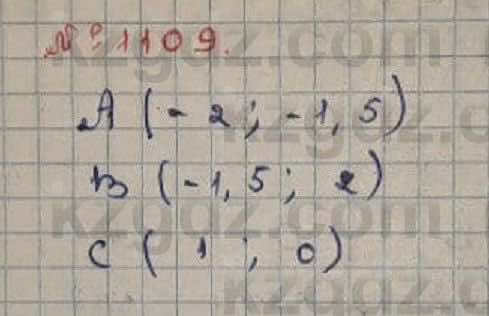 № 1109.
A (-2; -1,5)
B (-1,5; 2)
C (1; 0)
kzgdz.com